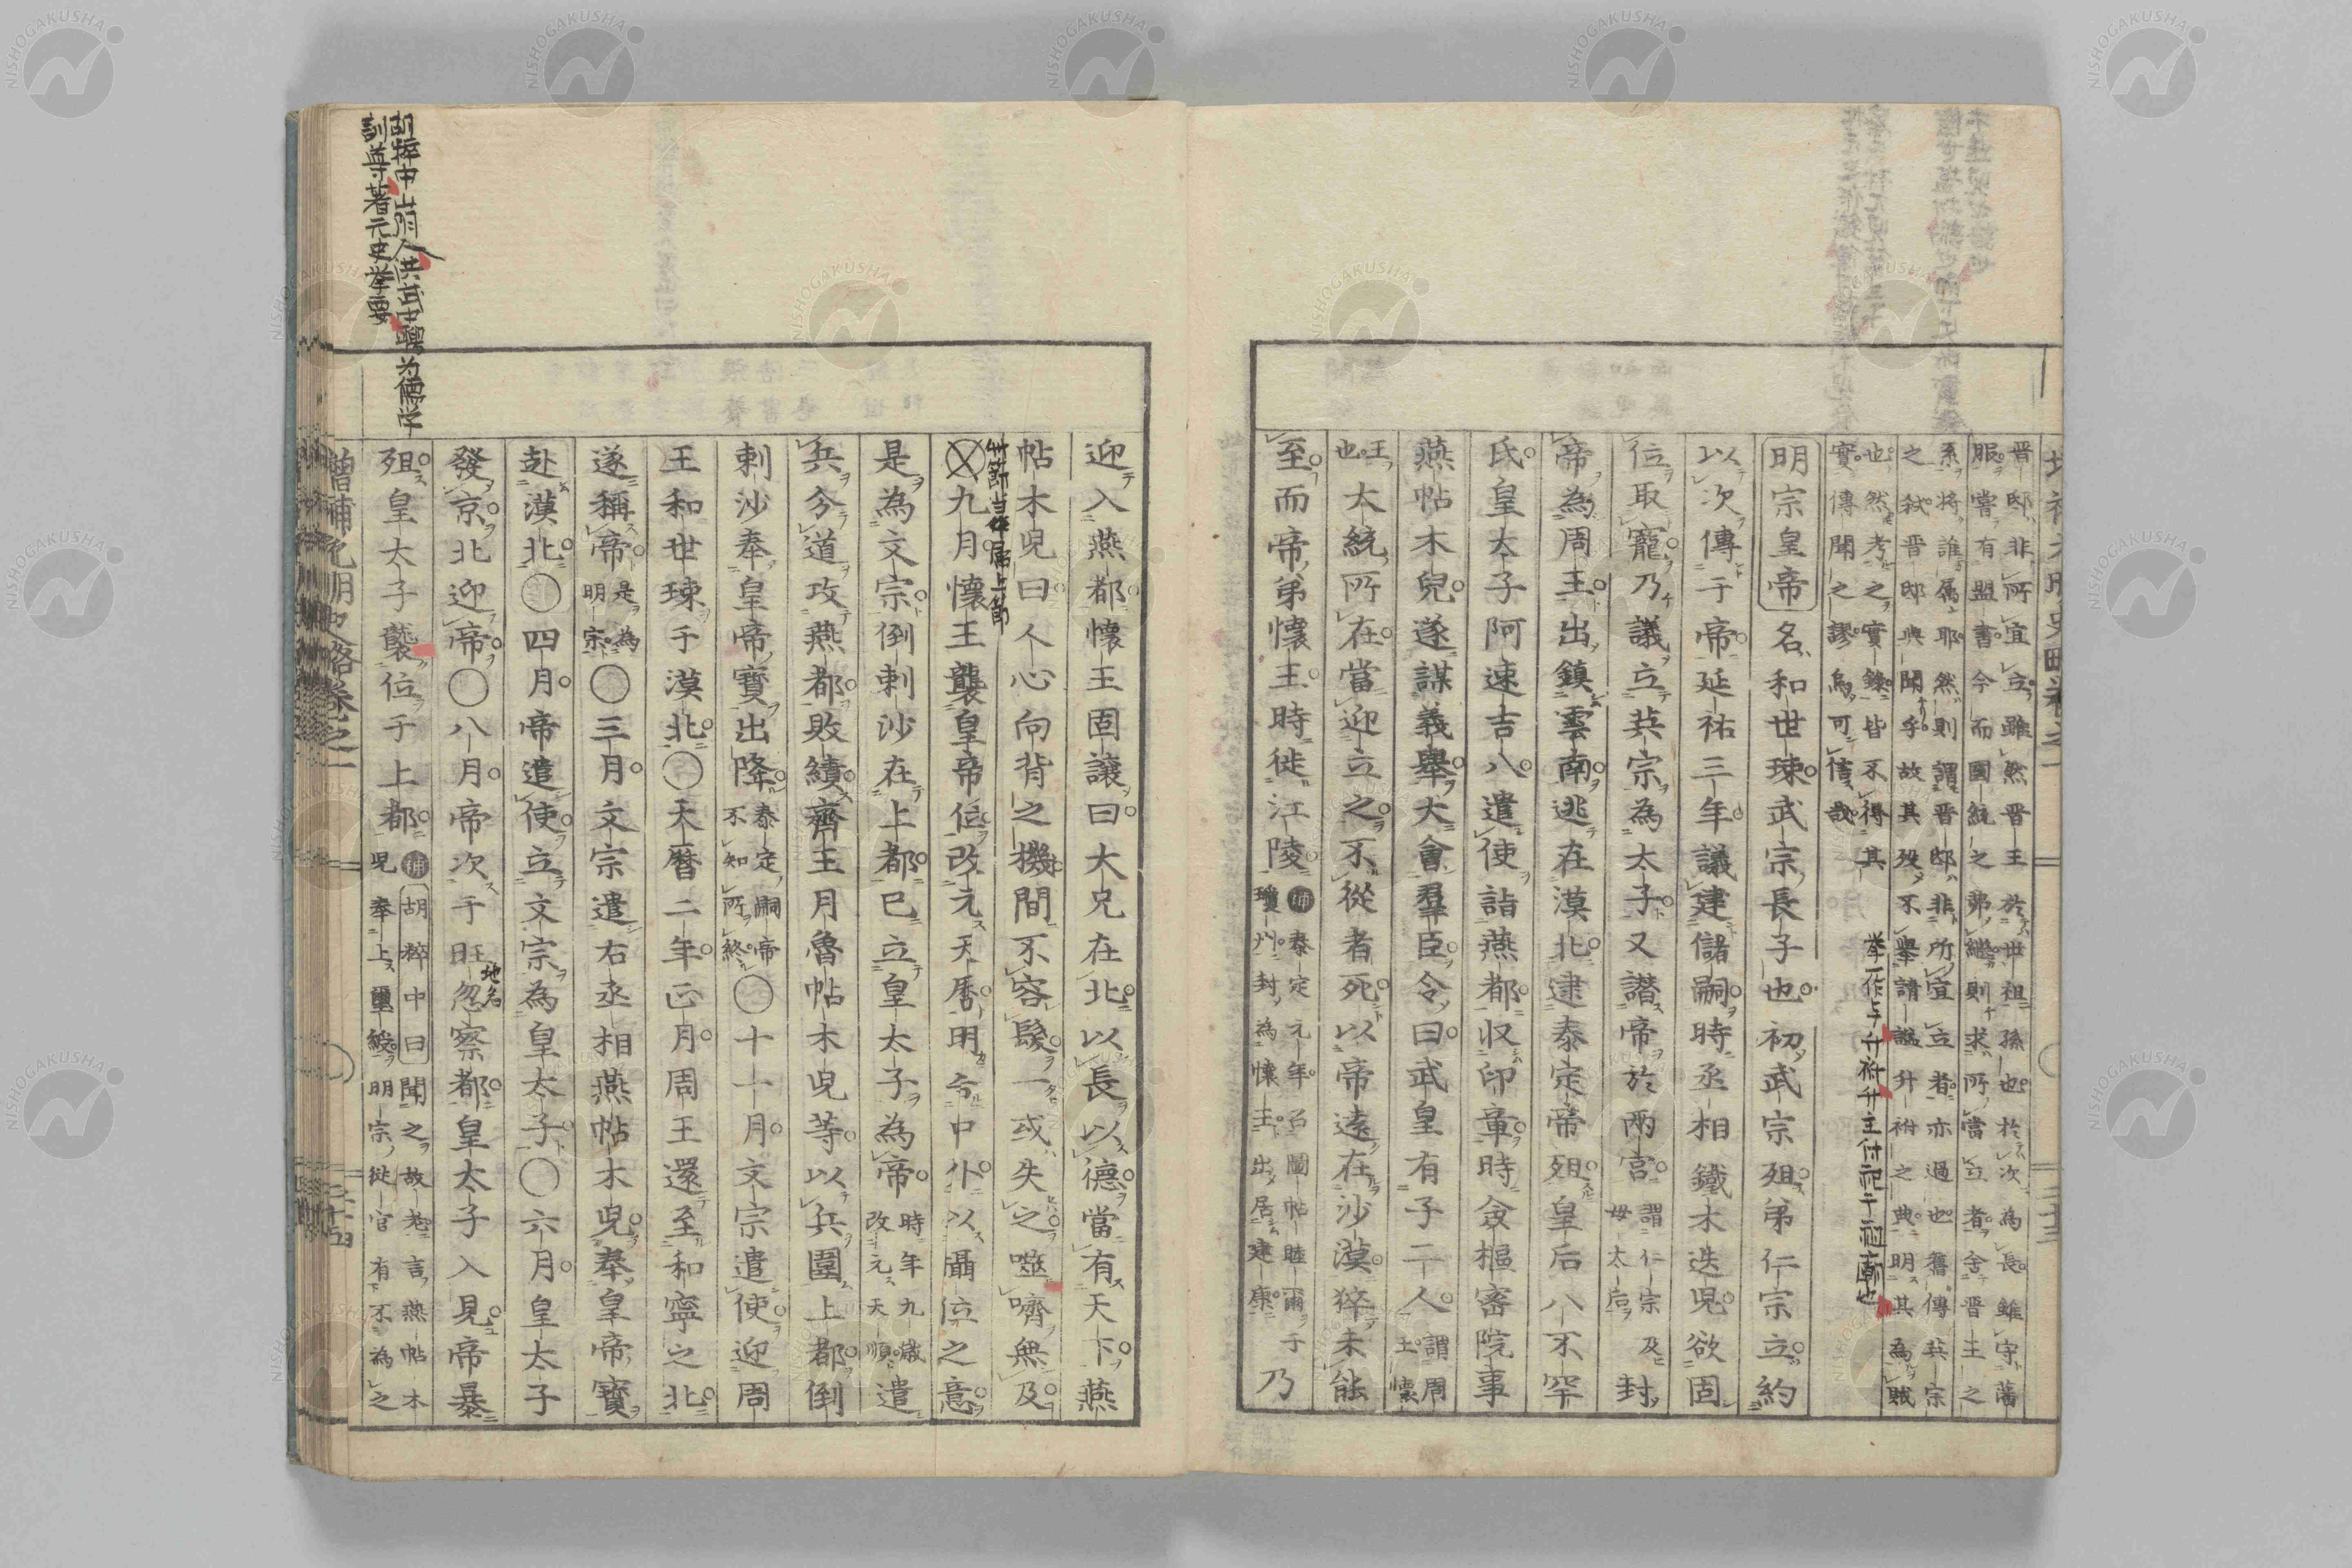 晋邸非所宜立雖然晋王於世祖孫也於次為長雖守藩
服嘗有盟書今而國統之弟繼則求所當立者舍晋王之
系將誰属耶然則謂晋邸非所宜立者亦過也舊傳英宗
之弑晋邸與聞乎故其歿不舉請諡升祔之典明其為賊
也然考之實錄皆不得其
實傳聞之謬烏可信哉
明宗皇帝名和世㻋武宗長子也初武宗殂弟仁宗立約
以次傳于帝延祐三年議建儲嗣時丞相鐵木迭兒欲固
位取寵乃議立英宗為太子又譖帝於兩宮謂仁宗及母太后封
帝為周王出鎮雲南逃在漠北逮泰定帝殂皇后八不罕
氏皇太子阿速吉八遣使詣燕都収印章時僉樞密院事
燕帖木兒遂謀義舉大會羣臣令曰武皇有子二人謂周王懷
王也太統所在當迎立之不從者死以帝遠在沙漠猝未能
至而帝弟懷王時徙江陵補泰定元年召圖帖睦爾于瓊州封為懷王出居建康乃
迎入燕都懷王固讓曰大兄在北以長以德當有天下燕
帖木兒曰人心向背之機間不容髮一或失之噬嚌無及
九月懷王襲皇帝位改元天曆明令中外以攝位之意
是為文宗倒剌沙在上都已立皇太子為帝時年九歲改元天順遣
兵分道攻燕都敗績齊王月魯帖木兒等以兵圍上都倒
剌沙奉皇帝寶出降泰定嗣帝不知所終〇十一月文宗遣使迎周
王和世㻋于漠北〇天曆二年正月周王還至和寧之北
遂稱帝是為明宗〇三月文宗遣右丞相燕帖木兒奉皇帝寶
赴漠北〇四月帝遣使立文宗為皇太子〇六月皇太子
發京北迎帝〇八月帝次于旺忽察都皇太子入見帝暴
殂皇太子襲位于上都補胡粹中曰聞之故老言燕帖木
兒奉上璽綬明宗從官有不為之
増補元明史略卷之一
地名
胡粹中山陰人洪武中聘为儒学
訓導著元史挙要